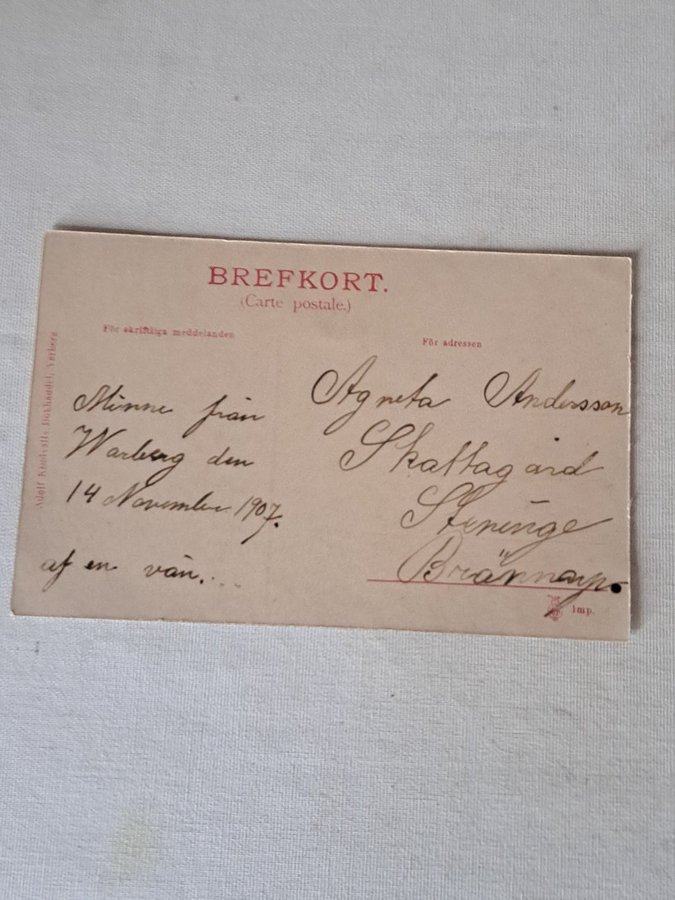 BREFKORT.
(Carte postale.)
För skriftliga meddelanden
För adressen
Minne från
Warberg den
14 November 1907.
af en vän....
Agneta Andersson
Skattagård
Steninge
Brännarp.
Imp.
Adolf Bokhandel, Varberg